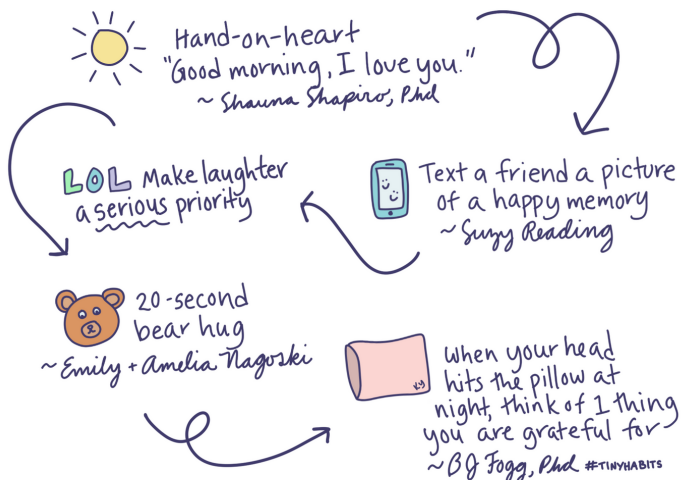 Hand-on-heart
"Good morning, I love you."
~ Shauna Shapiro, PhD
Text a friend a picture
of a happy memory
~ Suzy Reading
LOL Make laughter
a serious priority
20-second
bear hug
~ Emily + Amelia Nagoski
When your head
hits the pillow at
night, think of 1 thing
you are grateful for
~ BJ Fogg, PhD #TINYHABITS